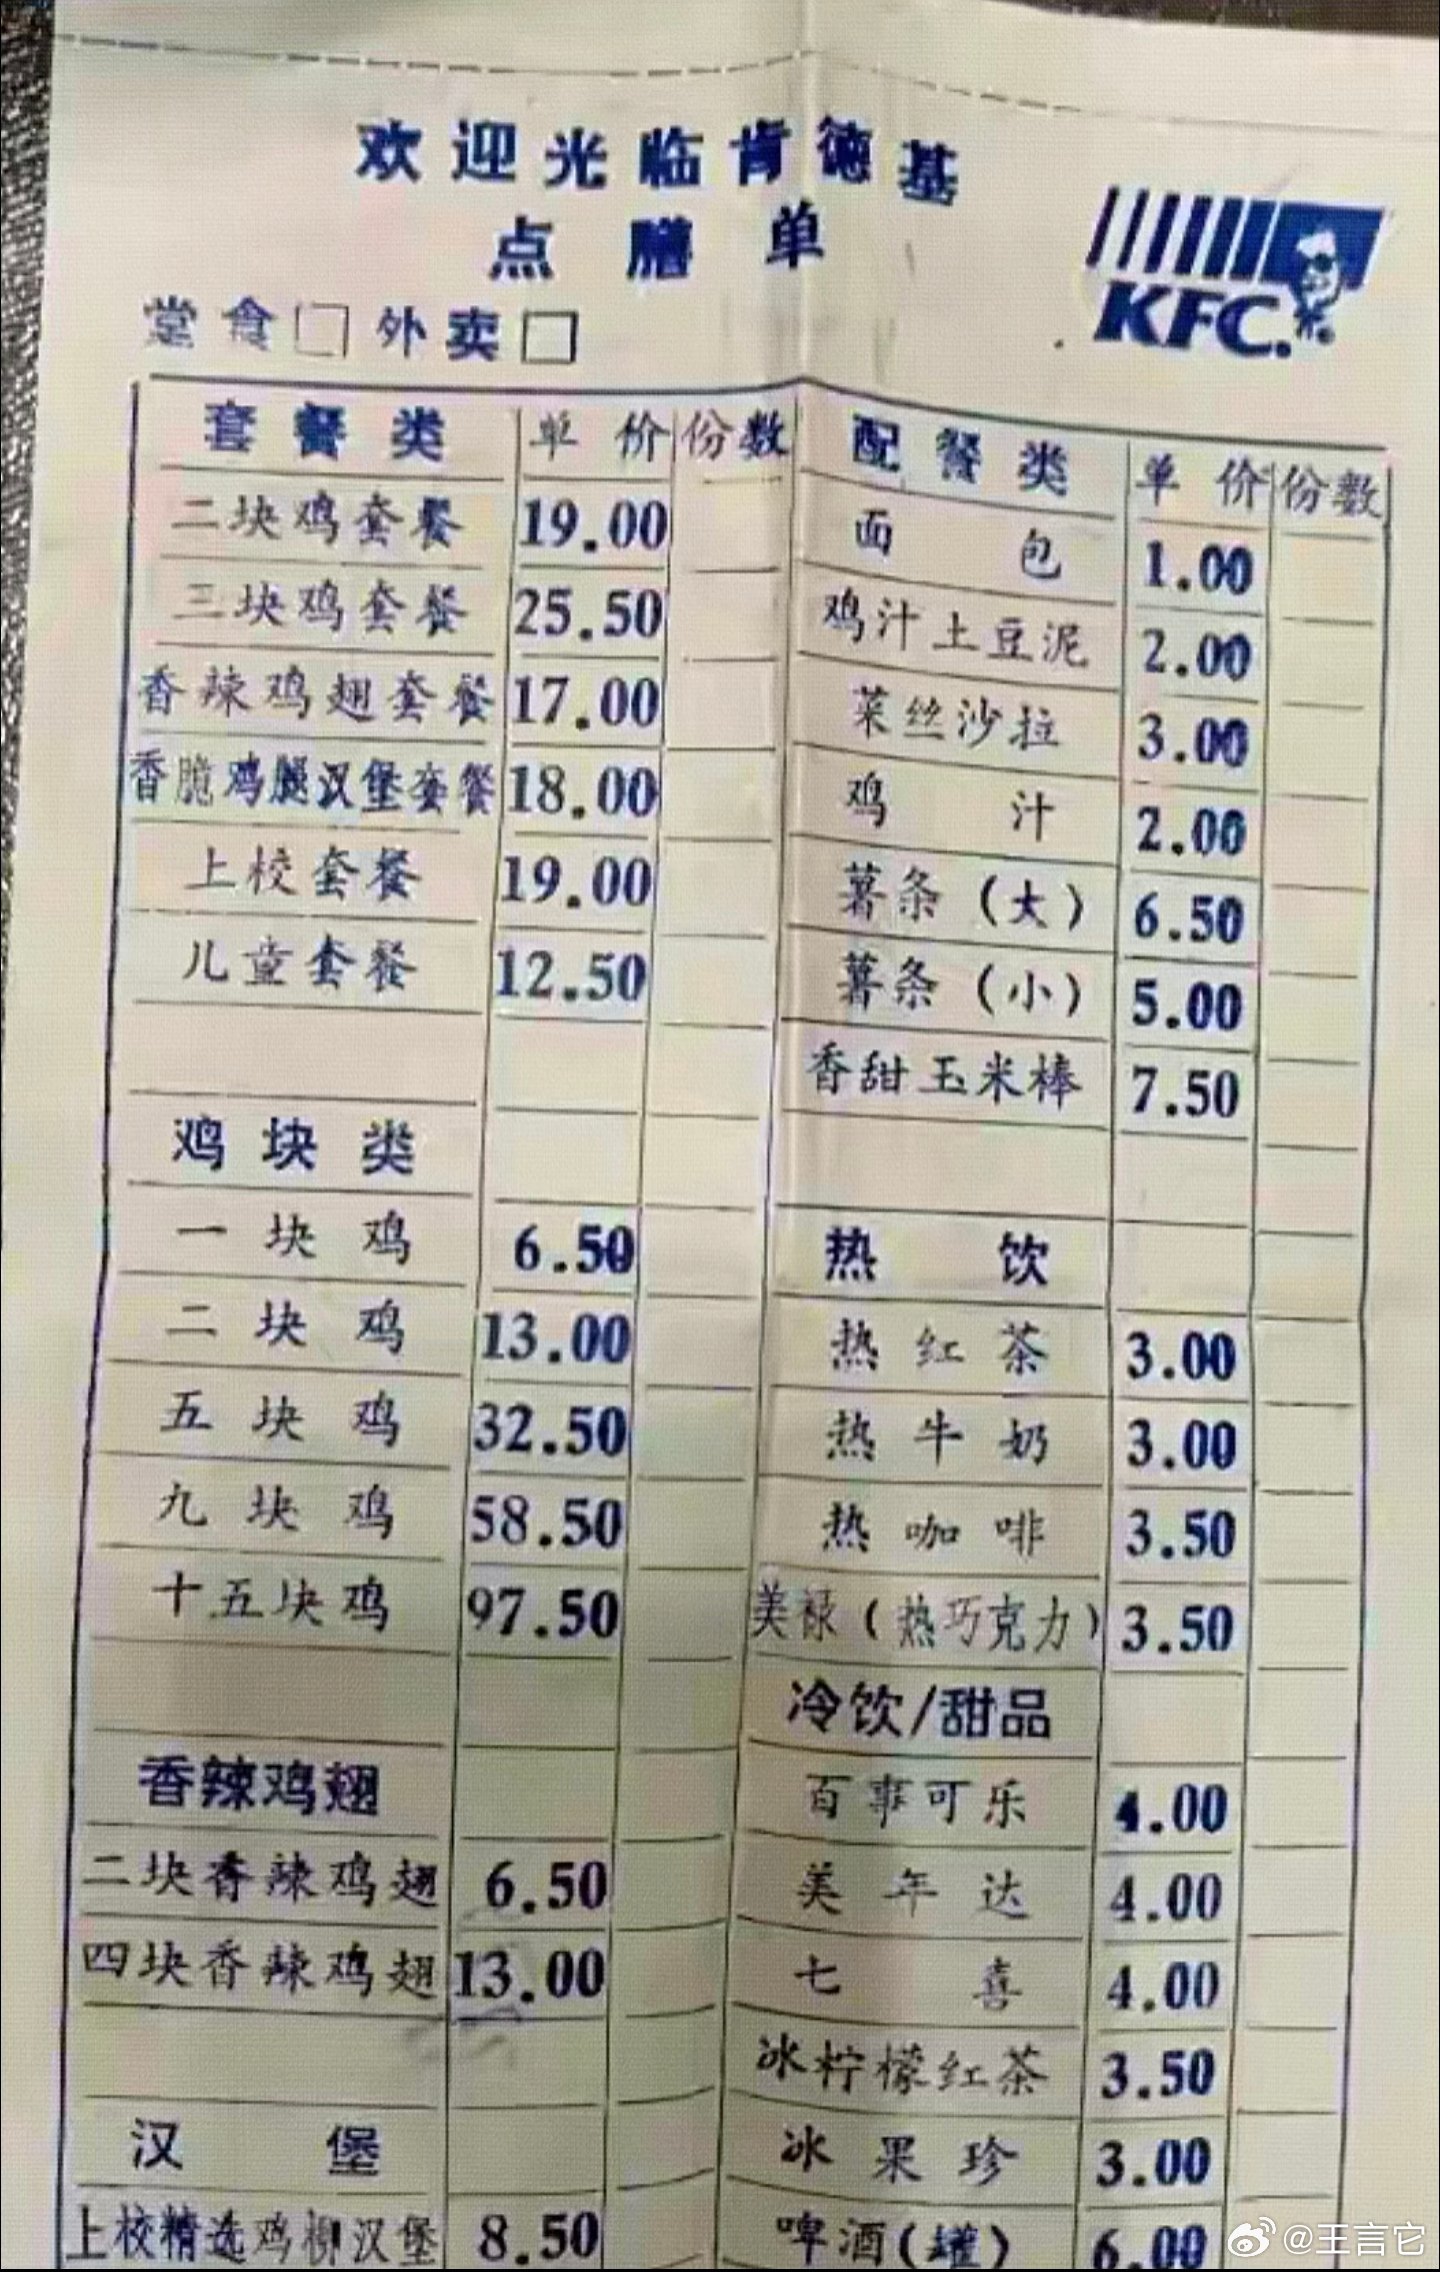 欢迎光临肯德基
点膳单
KFC
堂食□ 外卖□
套餐类 单价 份数
二块鸡套餐 19.00
三块鸡套餐 25.50
香辣鸡翅套餐 17.00
香脆鸡腿汉堡套餐 18.00
上校套餐 19.00
儿童套餐 12.50
鸡块类
一块鸡 6.50
二块鸡 13.00
五块鸡 32.50
九块鸡 58.50
十五块鸡 97.50
香辣鸡翅
二块香辣鸡翅 6.50
四块香辣鸡翅 13.00
汉堡
上校精选鸡柳汉堡 8.50
配餐类 单价 份数
面包 1.00
鸡汁土豆泥 2.00
菜丝沙拉 3.00
鸡汁 2.00
薯条(大) 6.50
薯条(小) 5.00
香甜玉米棒 7.50
热饮
热红茶 3.00
热牛奶 3.00
热咖啡 3.50
美禄(热巧克力) 3.50
冷饮/甜品
百事可乐 4.00
美年达 4.00
七喜 4.00
冰柠檬红茶 3.50
冰果珍 3.00
啤酒(罐) 6.00
@王言它